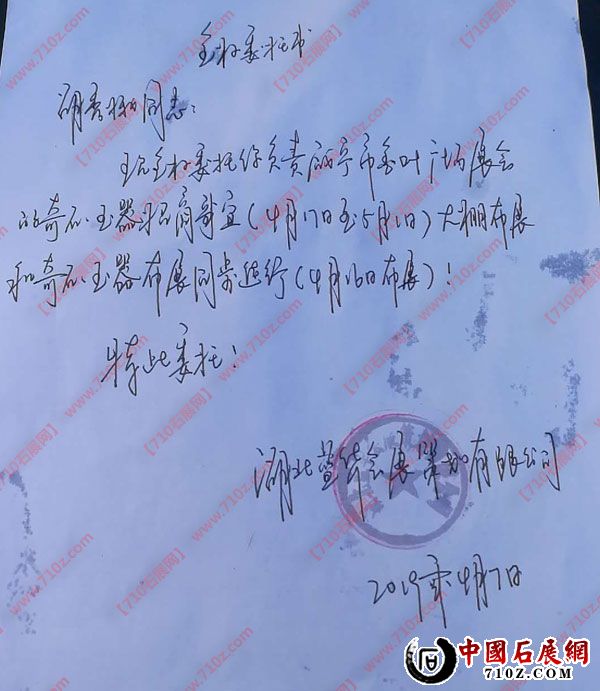 全权委托书
胡秀柳同志:
现全权委托你负责咸宁市香叶广场展会
的奇石、玉器招商事宜(4月17日至5月1日)大棚布展
和奇石、玉器布展同步进行(4月16日布展)!
特此委托!
湖北 会展策划有限公司
2019年4月7日
【710石展网】 www.710z.com
中國石展網
710Z.COM